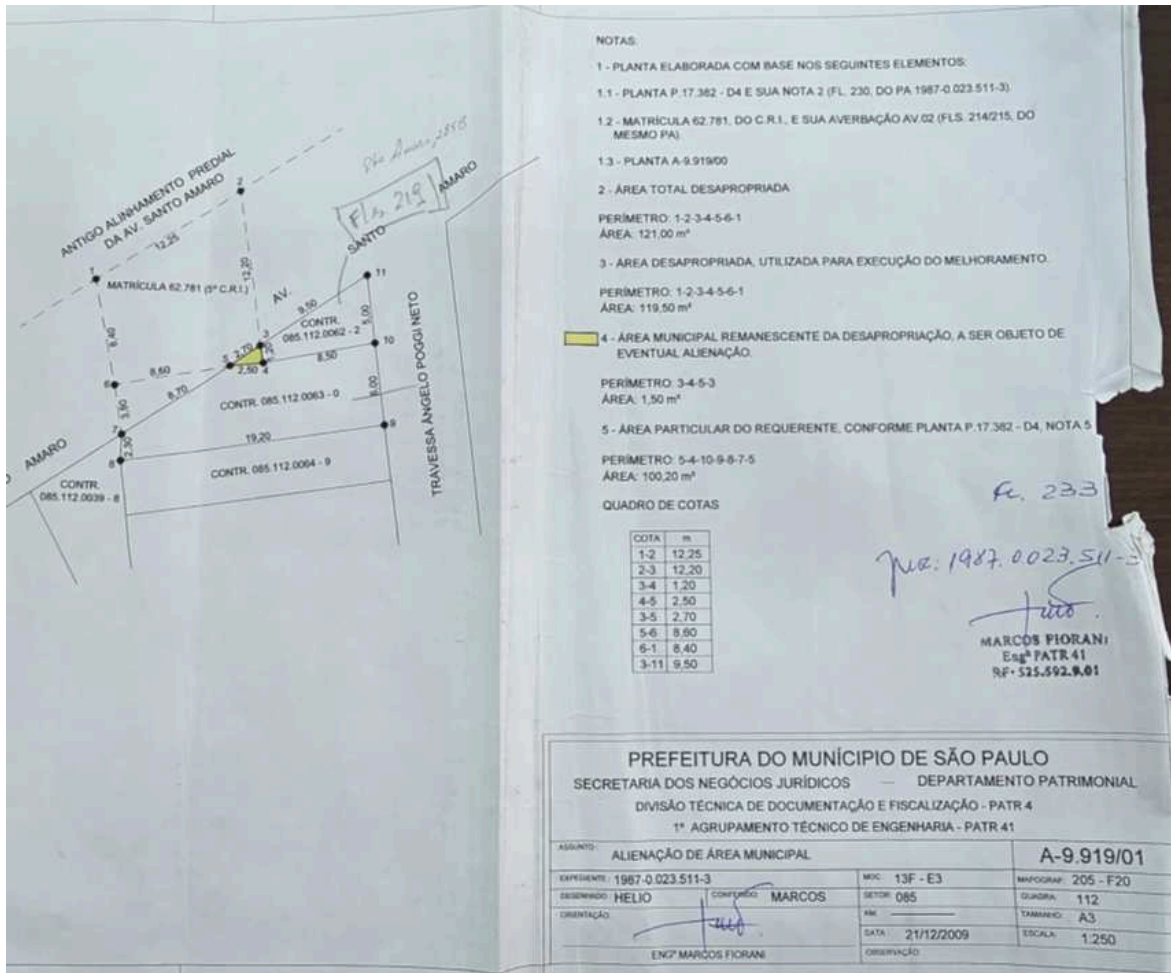 ANTIGO ALINHAMENTO PREDIAL
DA AV. SANTO AMARO
Fls. 219
SANTO
AMARO
1
2
12,25
12,20
MATRÍCULA 62.781 (5º C.R.I.)
AV.
9,50
11
3
CONTR.
085.112.0062 - 2
5,00
8,40
2,70
1,20
10
5
2,50
4
8,50
6
8,60
3,60
8,70
CONTR. 085.112.0063 - 0
6,00
7
19,20
9
2,30
8
AMARO
CONTR. 085.112.0064 - 9
CONTR.
085.112.0039 - 8
TRAVESSA ÂNGELO POGGI NETO
NOTAS:
1 - PLANTA ELABORADA COM BASE NOS SEGUINTES ELEMENTOS:
1.1 - PLANTA P.17.382 - D4 E SUA NOTA 2 (FL. 230, DO PA 1987-0.023.511-3)
1.2 - MATRÍCULA 62.781, DO C.R.I., E SUA AVERBAÇÃO AV.02 (FLS. 214/215, DO
MESMO PA)
1.3 - PLANTA A-9.919/00
2 - ÁREA TOTAL DESAPROPRIADA
PERÍMETRO: 1-2-3-4-5-6-1
ÁREA: 121,00 m²
3 - ÁREA DESAPROPRIADA, UTILIZADA PARA EXECUÇÃO DO MELHORAMENTO.
PERÍMETRO: 1-2-3-4-5-6-1
ÁREA: 119,50 m²
4 - ÁREA MUNICIPAL REMANESCENTE DA DESAPROPRIAÇÃO, A SER OBJETO DE
EVENTUAL ALIENAÇÃO.
PERÍMETRO: 3-4-5-3
ÁREA: 1,50 m²
5 - ÁREA PARTICULAR DO REQUERENTE, CONFORME PLANTA P.17.382 - D4, NOTA 5
PERÍMETRO: 5-4-10-9-8-7-5
ÁREA: 100,20 m²
QUADRO DE COTAS
COTA m
1-2 12,25
2-3 12,20
3-4 1,20
4-5 2,50
3-5 2,70
5-6 8,60
6-1 8,40
3-11 9,50
233
1987.0.023.511-3
MARCOS FIORANI
Engº PATR 41
RF. 525.592.9.01
PREFEITURA DO MUNÍCIPIO DE SÃO PAULO
SECRETARIA DOS NEGÓCIOS JURÍDICOS — DEPARTAMENTO PATRIMONIAL
DIVISÃO TÉCNICA DE DOCUMENTAÇÃO E FISCALIZAÇÃO - PATR 4
1º AGRUPAMENTO TÉCNICO DE ENGENHARIA - PATR 41
ASSUNTO: ALIENAÇÃO DE ÁREA MUNICIPAL A-9.919/01
EXPEDIENTE: 1987-0.023.511-3 MOC: 13F - E3 MAPOGRAF: 205 - F20
DESENHADO: HELIO CONFERIDO: MARCOS SETOR: 085 QUADRA: 112
ORIENTAÇÃO: TAMANHO: A3
DATA: 21/12/2009 ESCALA: 1:250
ENGº MARCOS FIORANI OBSERVAÇÃO: